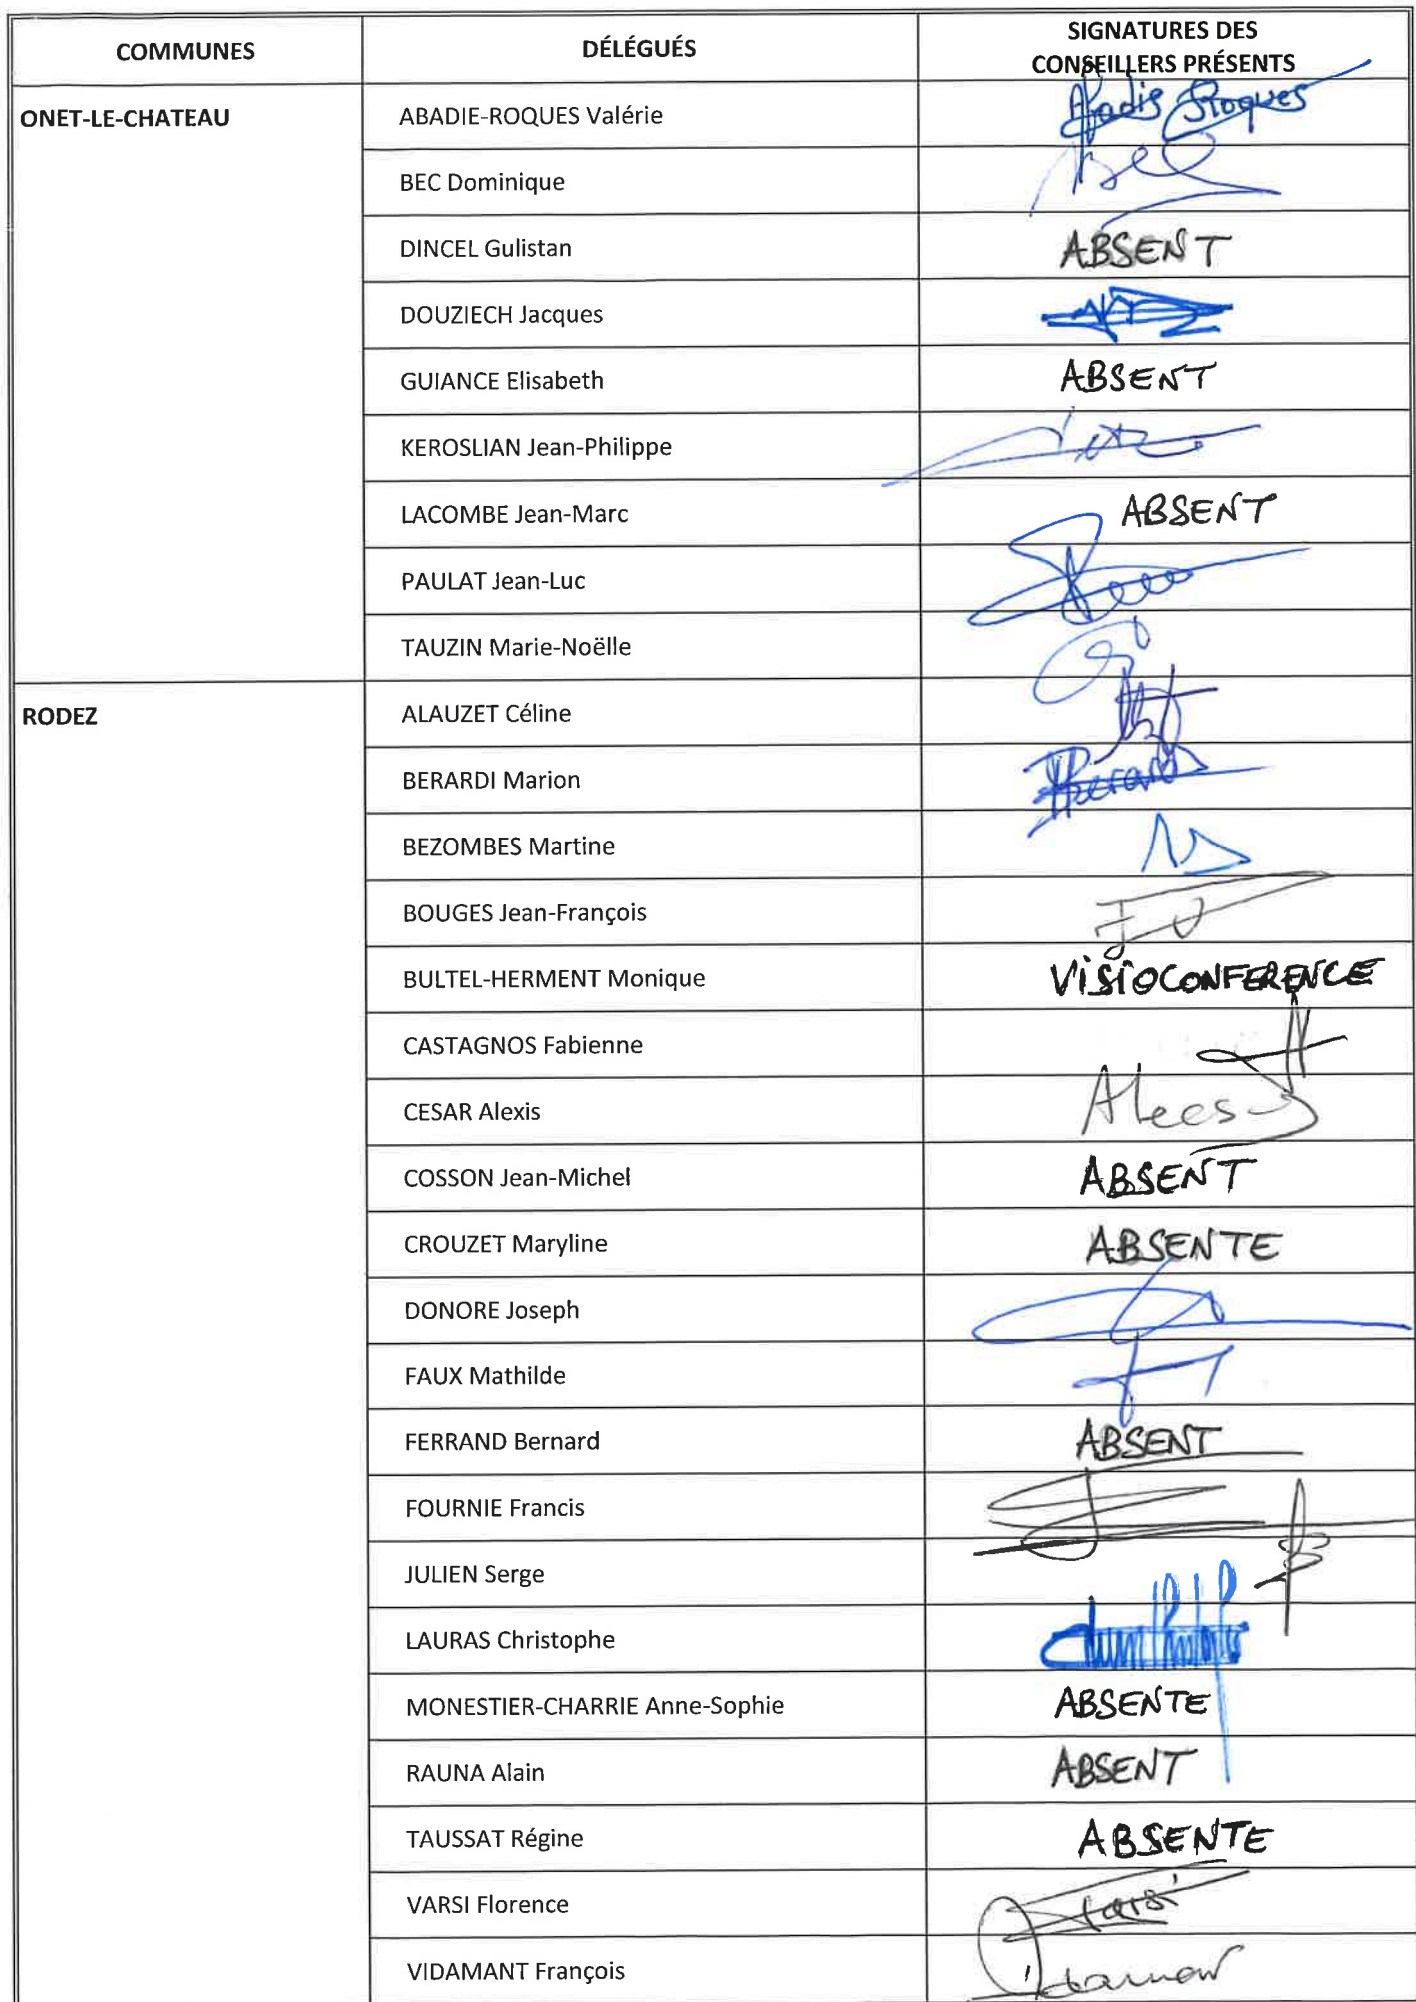 COMMUNES DÉLÉGUÉS SIGNATURES DES
CONSEILLERS PRÉSENTS
ONET-LE-CHATEAU ABADIE-ROQUES Valérie Abadie Roques
BEC Dominique Bec
DINCEL Gulistan ABSENT
DOUZIECH Jacques
GUIANCE Elisabeth ABSENT
KEROSLIAN Jean-Philippe
LACOMBE Jean-Marc ABSENT
PAULAT Jean-Luc
TAUZIN Marie-Noëlle
RODEZ ALAUZET Céline
BERARDI Marion
BEZOMBES Martine
BOUGES Jean-François
BULTEL-HERMENT Monique VISIOCONFERENCE
CASTAGNOS Fabienne
CESAR Alexis
COSSON Jean-Michel ABSENT
CROUZET Maryline ABSENTE
DONORE Joseph
FAUX Mathilde
FERRAND Bernard ABSENT
FOURNIE Francis
JULIEN Serge
LAURAS Christophe
MONESTIER-CHARRIE Anne-Sophie ABSENTE
RAUNA Alain ABSENT
TAUSSAT Régine ABSENTE
VARSI Florence Varsi
VIDAMANT François